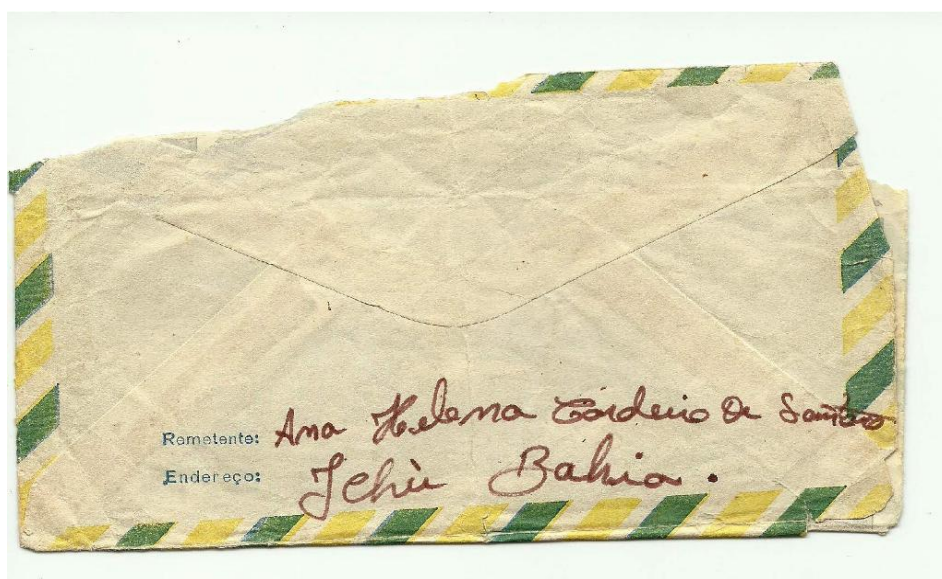 Remetente: Ana Helena Cordeiro De Santana
Endereço: Ichù Bahia.